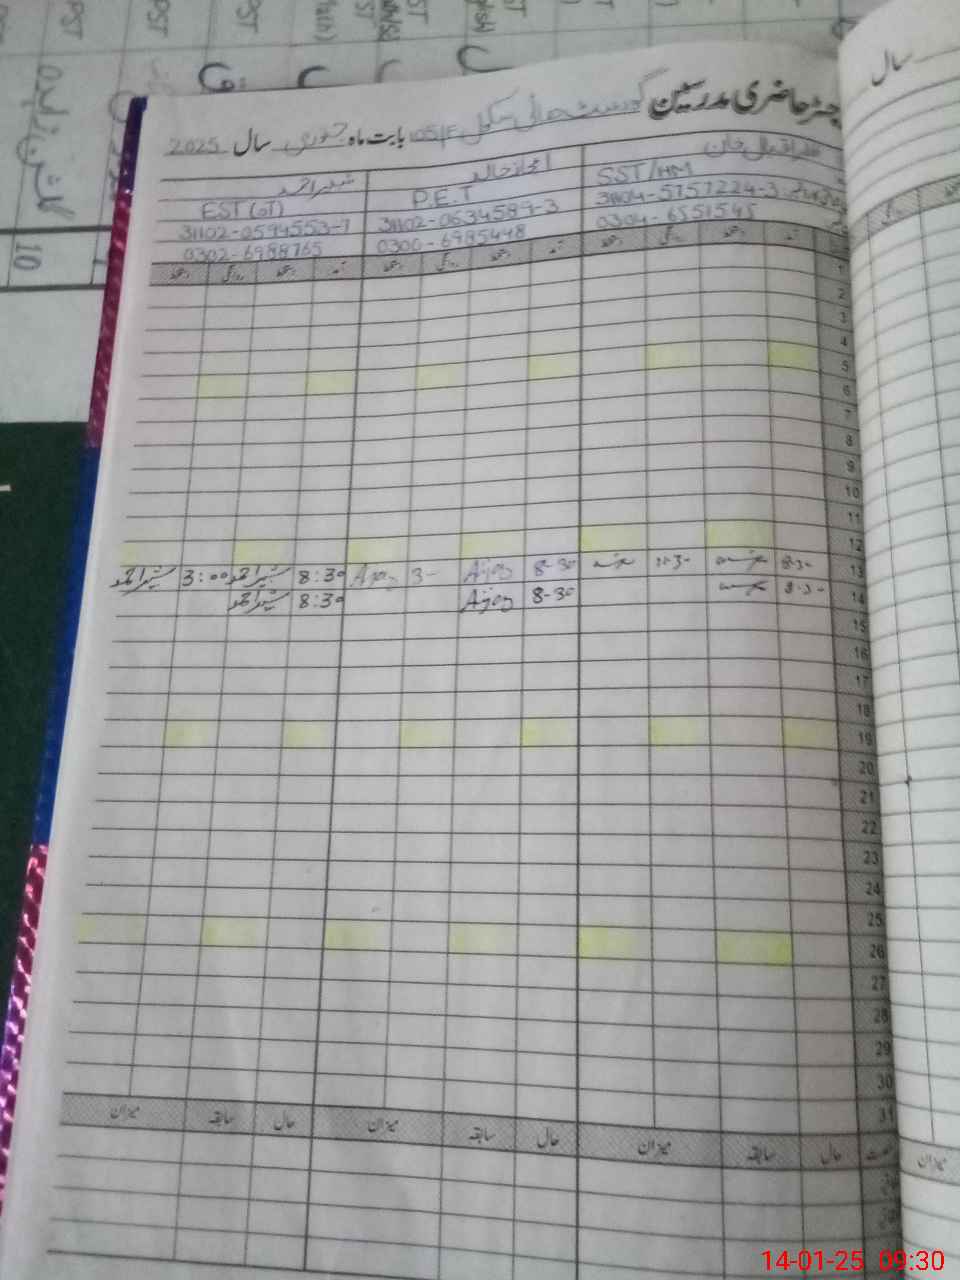 سال
رجسٹر حاضری مدرسین گورنمنٹ ہائی سکول 105/F بابت ماہ جنوری سال 2025
ظفر اقبال خان اعجاز خالد شبیر احمد
SST/HM P.E.T EST(OT)
31104-5757224-3 31102-0634589-3 31102-0594553-7
0304-6551545 0300-6985448 0302-6988765
آمد دستخط روانگی دستخط آمد دستخط روانگی دستخط آمد دستخط روانگی دستخط
1
2
3
4
5
6
7
8
9
10
11
12
13 8-30 8-30 Aijaz 3- Aijaz 8:30 شبیر احمد 3:00 شبیر احمد
14 8-30 8-30 Aijaz 8:30 شبیر احمد
15
16
17
18
19
20
21
22
23
24
25
26
27
28
29
30
31
حال سابقہ میزان حال سابقہ میزان حال سابقہ میزان
میزان
PST
10
14-01-25 09:30